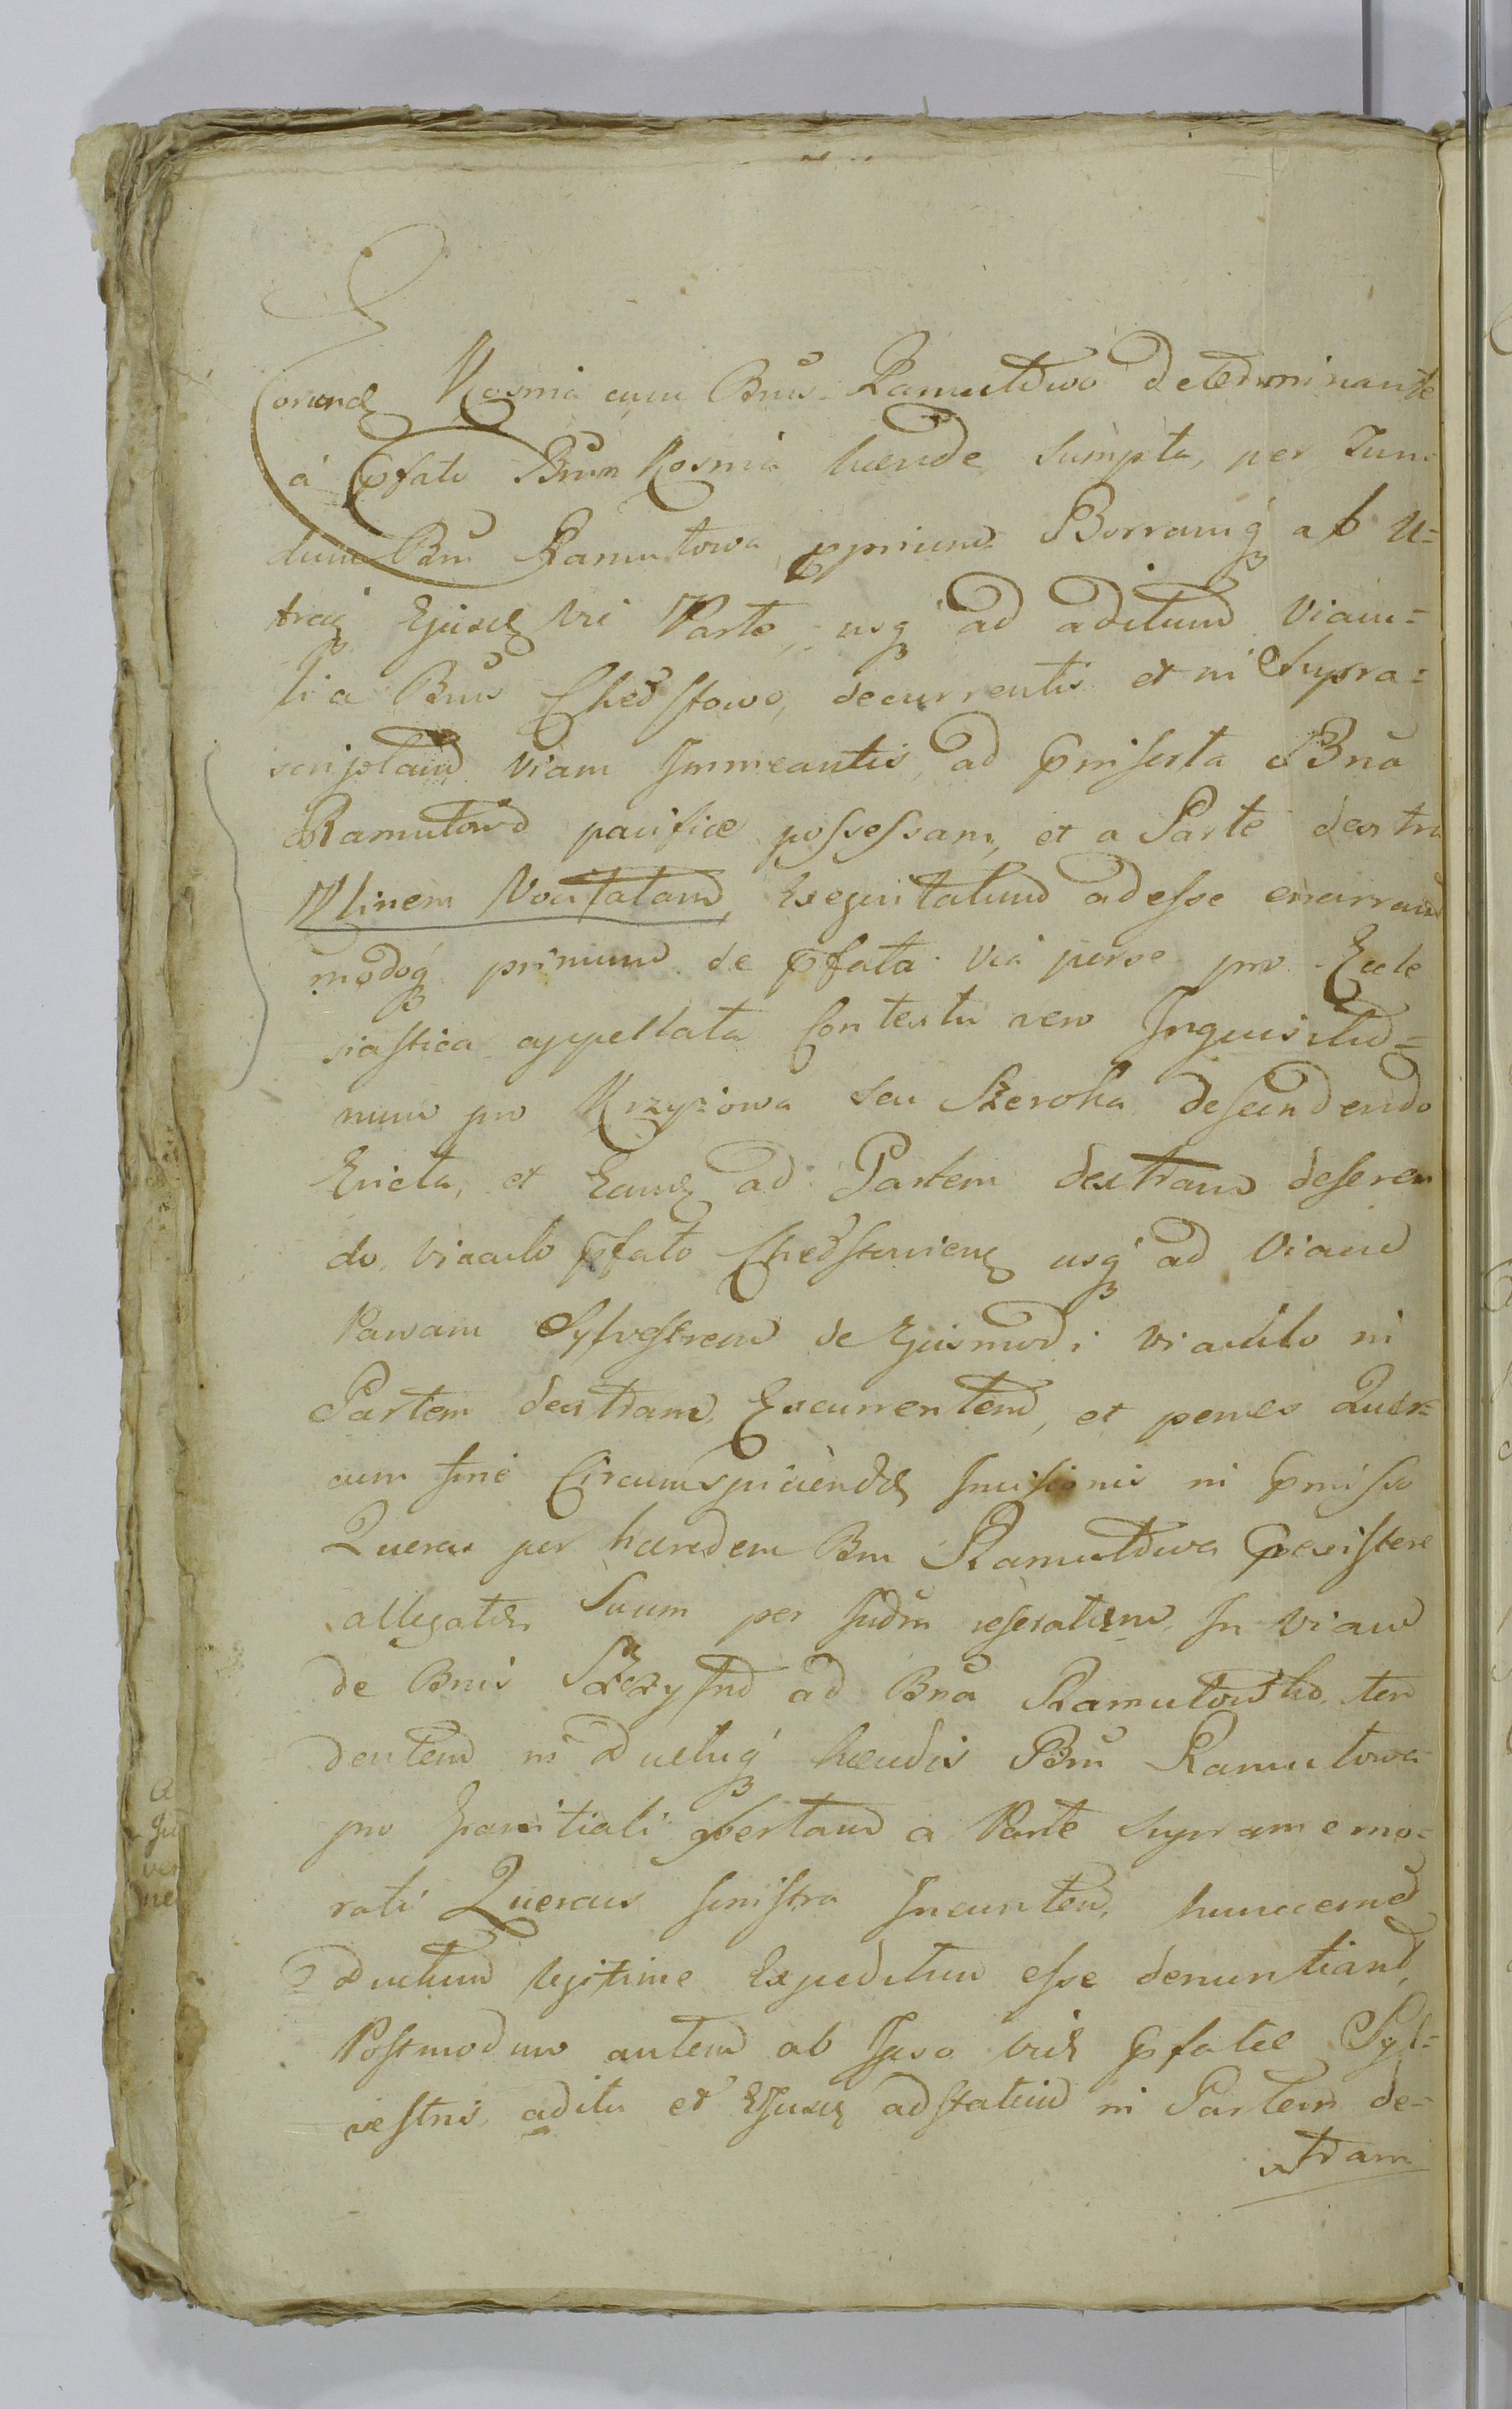 Kosmia cum Bnis Ramultowo determinante
a pfato Bnum Kosmia hærede sumpta, per Tun=
dum Bnm Ramultowa pprium Borraniq ab U=
traq Ejusd vri Parte, usq ad aditum Viam=
li a Bnis Chedstowo, decurrentis et in Supra=
scriptam viam Immeantis, ad pinserta Bna
Ramutowo pacifice possessam, et a Parte dextra
Klinem Vocitatam, exequitatum adesse enarrand
modoq primum de pfata via perse pro Eccle
siastica appellata Contextu vero Inquisitio=
num pro Krzyzowa seu Szeroka descendendo
Evicta, et Eand ad Partem dextram deseren
do, viaculo pfato Chedstowien usq ad Viam
Parvam Sylvestrem de Ejusmodi viaculo in
Partem dextram, Excurrentem, et penes Quer=
cum sine Circumspiciendæ Incisionis in pmisso
Quercu per hæredem Bm Ramultowa pexistere
allegatæ, Suum per Judm reseratum, In viam
de Bnis ad Bna Ramutowsko, ten
dentem in Ductuq hæredis Bm Ramutowa
pro Granitiali a Parte supramemo=
rati Quercus sinistra Ineuntem, huncemed
Ductum legitime Expeditum esse denuntiand,
Postmodum autem ab Ipso viæ pfatæ Syl=
vestris aditu et Ejusd adstatum in Partem de=
xtram